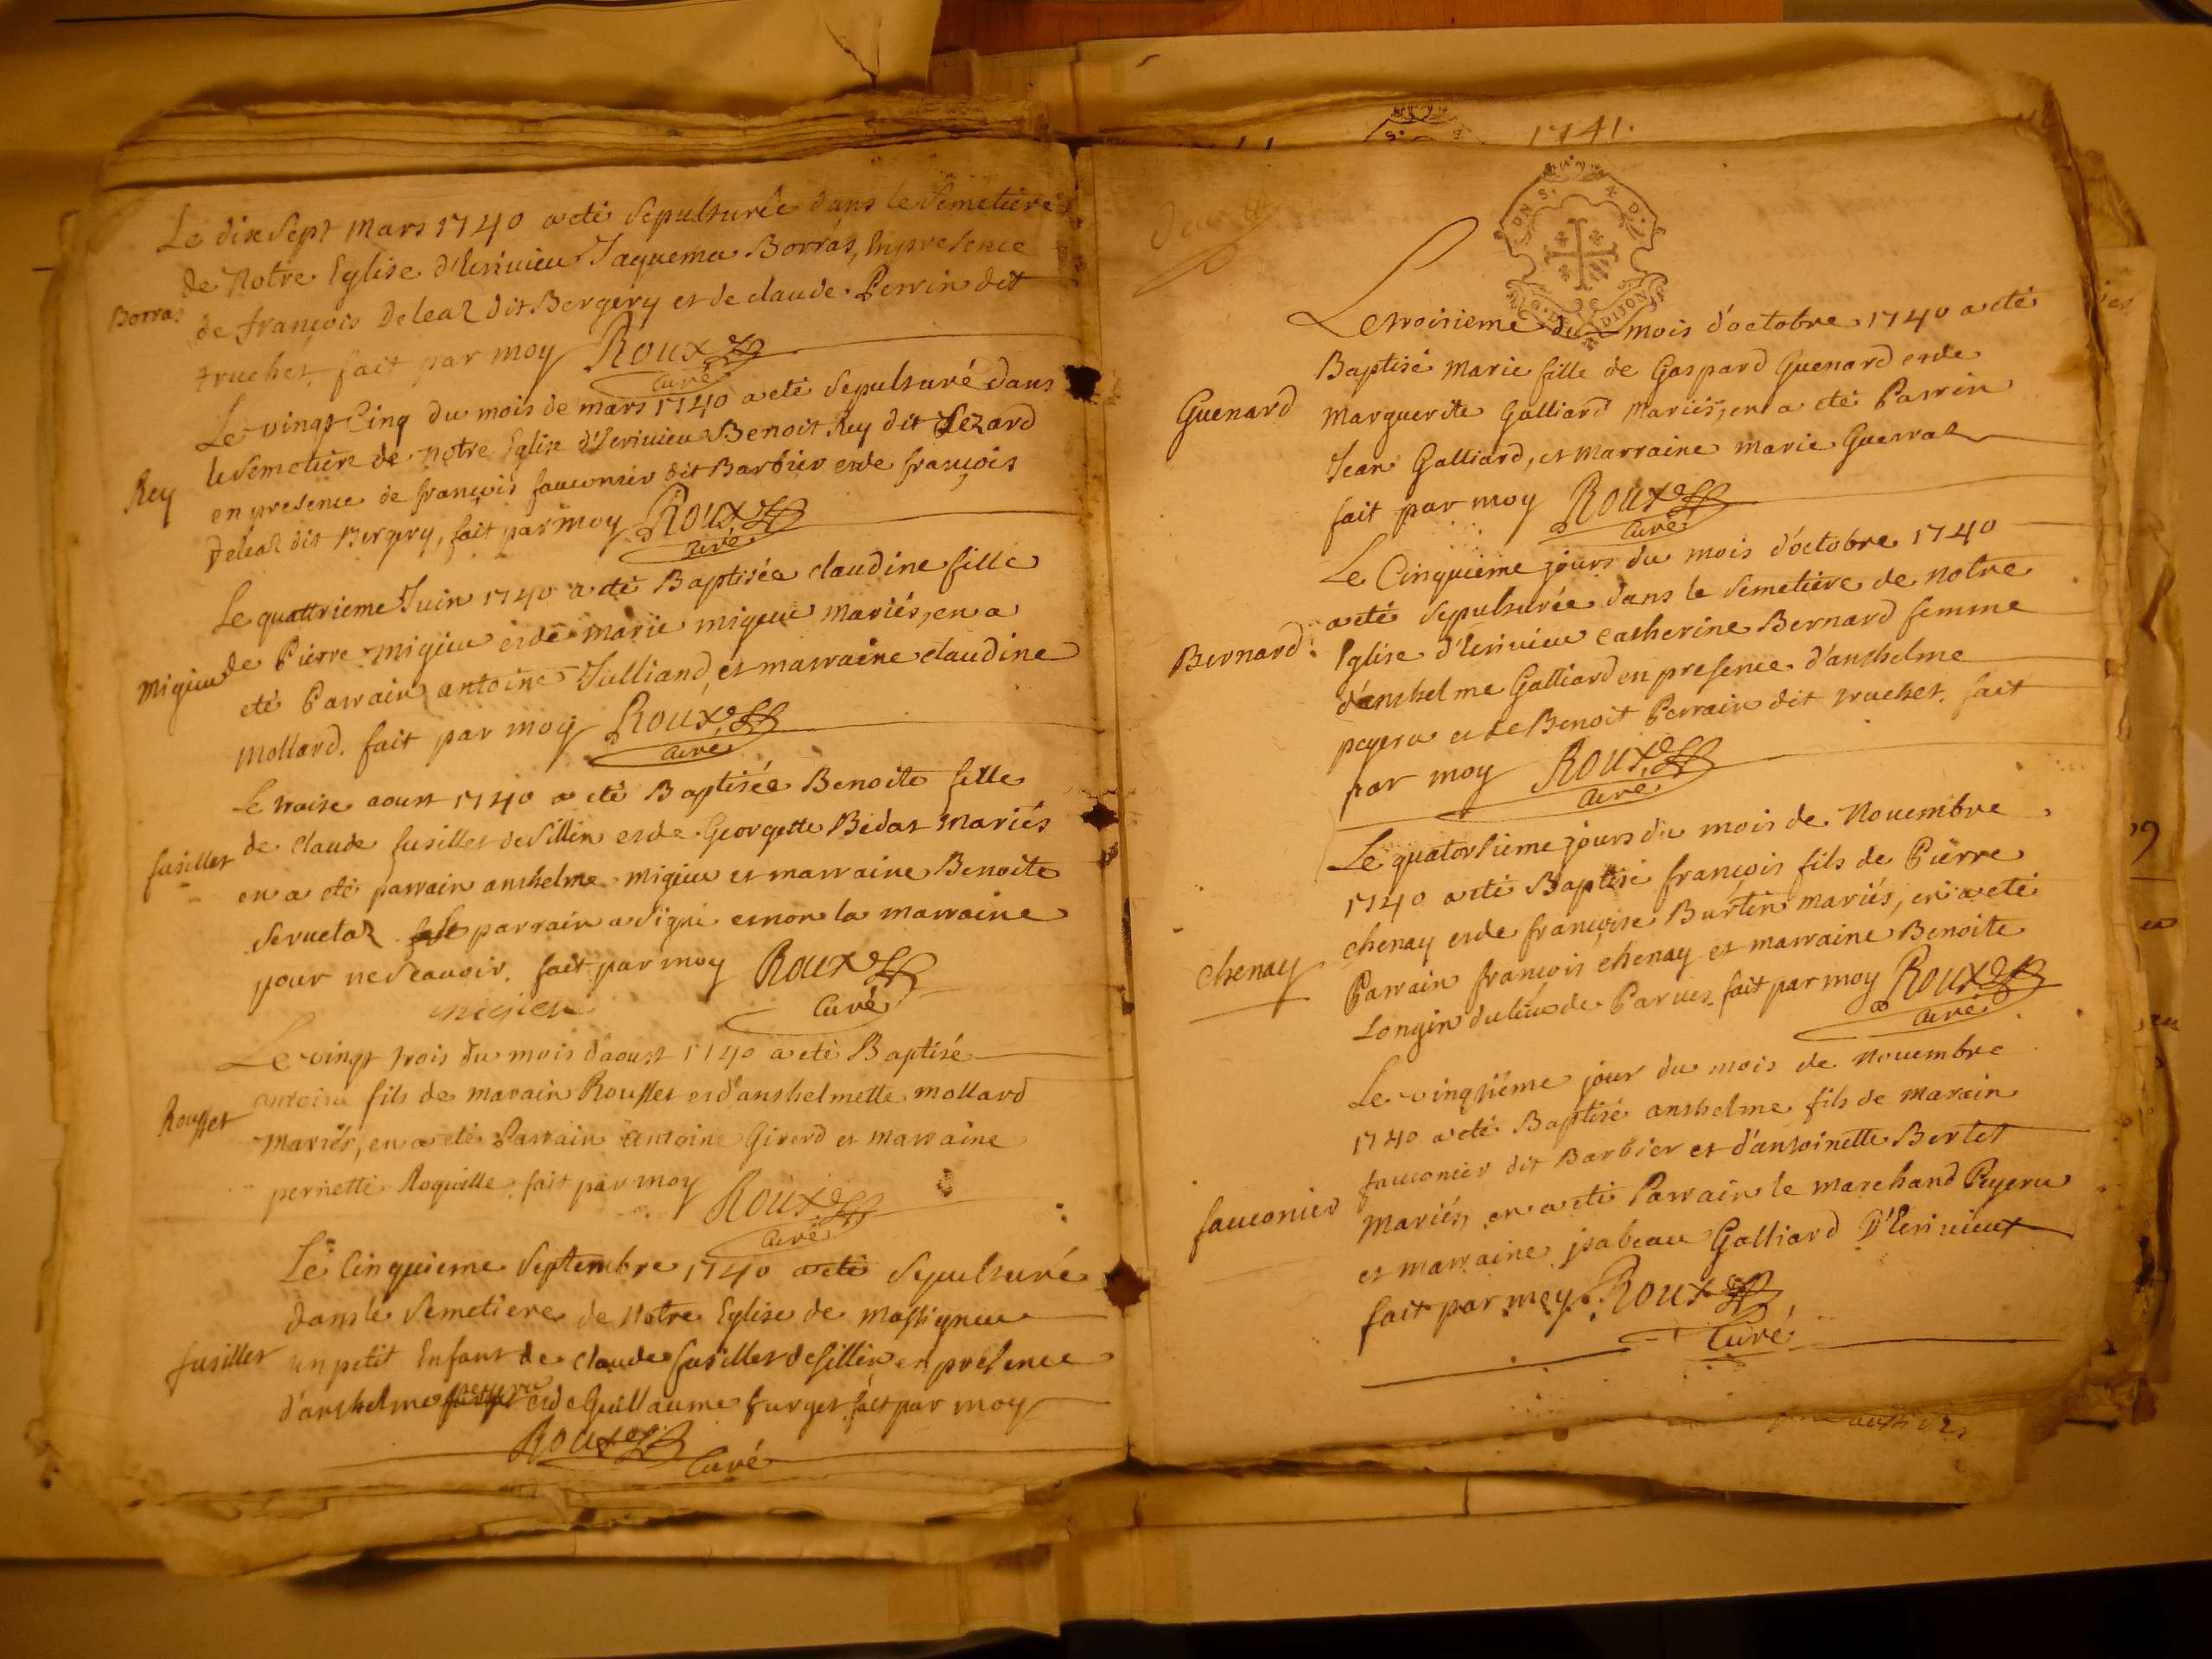 Le dixsept mars 1740 a eté sepulturée dans le semetiere
de Notre Eglise d'Ecrivieu Jaquema Borras, en presence
Borras
de françois Deleaz dit Bergery et de claude Perrin dit
truchet, fait par moy Roux
Curé
Le vingt Cinq du mois de mars 1740 a eté sepulturé dans
le semetiere de notre Eglise d'Ecrivieu Benoit Rey dit Lezard
Rey
en presence de françois fauconnier dit Barbier et de françois
Deleaz dit Bergery, fait par moy Roux
Curé
Le quattrieme Juin 1740 a eté Baptisée claudine fille
Migieu
de Pierre migieu et de marie migieu mariés, en a
eté Parrain antoine Julliand, et marraine claudine
mollard. fait par moy Roux
Curé
Le traise aoust 1740 a eté Baptisée Benoite fille
fusillet
de claude fusillet de sillin et de Georgette Bidat mariés
en a eté parrain anthelme migieu et marraine Benoite
Servetaz le parrain a signé et non la marraine
pour ne scavoir. fait par moy Roux
Curé
migieu
Le vingt trois du mois d'aoust 1740 a eté Baptisé
Rousset
antoine fils de marain Rousset et d'anthelmette mollard
mariés, en a eté Parrain Antoine Girerd et marraine
pernette Roquille fait par moy Roux
Curé
Le Cinquieme Septembre 1740 a eté sepulturé
dans le semetiere de Notre Eglise de massignieu
fusillet
un petit Enfant de claude fusillet de sillin en presence
d'anthelme peyeru et de Guillaume furget fait par moy
Roux Curé
1741.
DIJON
Le troisieme du mois d'octobre 1740 a eté
Baptisé marie fille de Gaspard Guenard et de
Guenard
marguerite Galliard mariés, en a eté Parrin
Jean Galliard, et marraine marie Guerraz
fait par moy Roux
Curé
Le Cinquieme jours du mois d'octobre 1740
a eté sepulturée dans le semetiere de notre
Bernard
Eglise d'Ecrivieu catherine Bernard femme
d'anthelme Galliard en presence d'anthelme
peyeru et de Benoit Perrain dit truchet. fait
par moy Roux
Curé
Le quatorsieme jours du mois de Novembre
1740 a eté Baptisé françois fils de Pierre
Chenay
chenay et de françoise Burtin mariés, en a eté
Parrain françois chenay et marraine Benoite
Longin du lieu de Parves fait par moy Roux
Curé
Le vingtiéme jour du mois de novembre
1740 a eté Baptisé anthelme fils de marain
fauconier
fauconier dit Barbier et d'antoinette Bertet
mariés, en a eté Parrain le marchand Peyeru
et marraine jsabeau Galliard D'Ecrivieux
fait par moy Roux
Curé